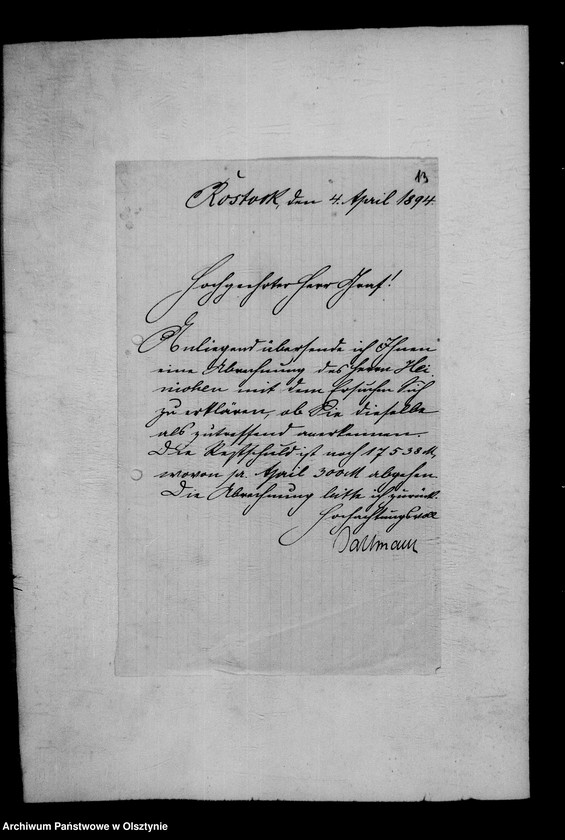 13
Rostock, den 4. April 1894.
Hochgeehrter Herr Graf!
Anliegend übersende ich Ihnen
eine Abrechnung des Herrn Hei-
mohen mit dem Ersuchen Sich
zu erklären, ob Sie dieselbe
als zutreffend anerkennen.
Die Restschuld ist noch 17538 M,
wovon pr. April 300 M abgehen.
Die Abrechnung bitte ich zurück.
Hochachtungsvoll
Archiwum Państwowe w Olsztynie